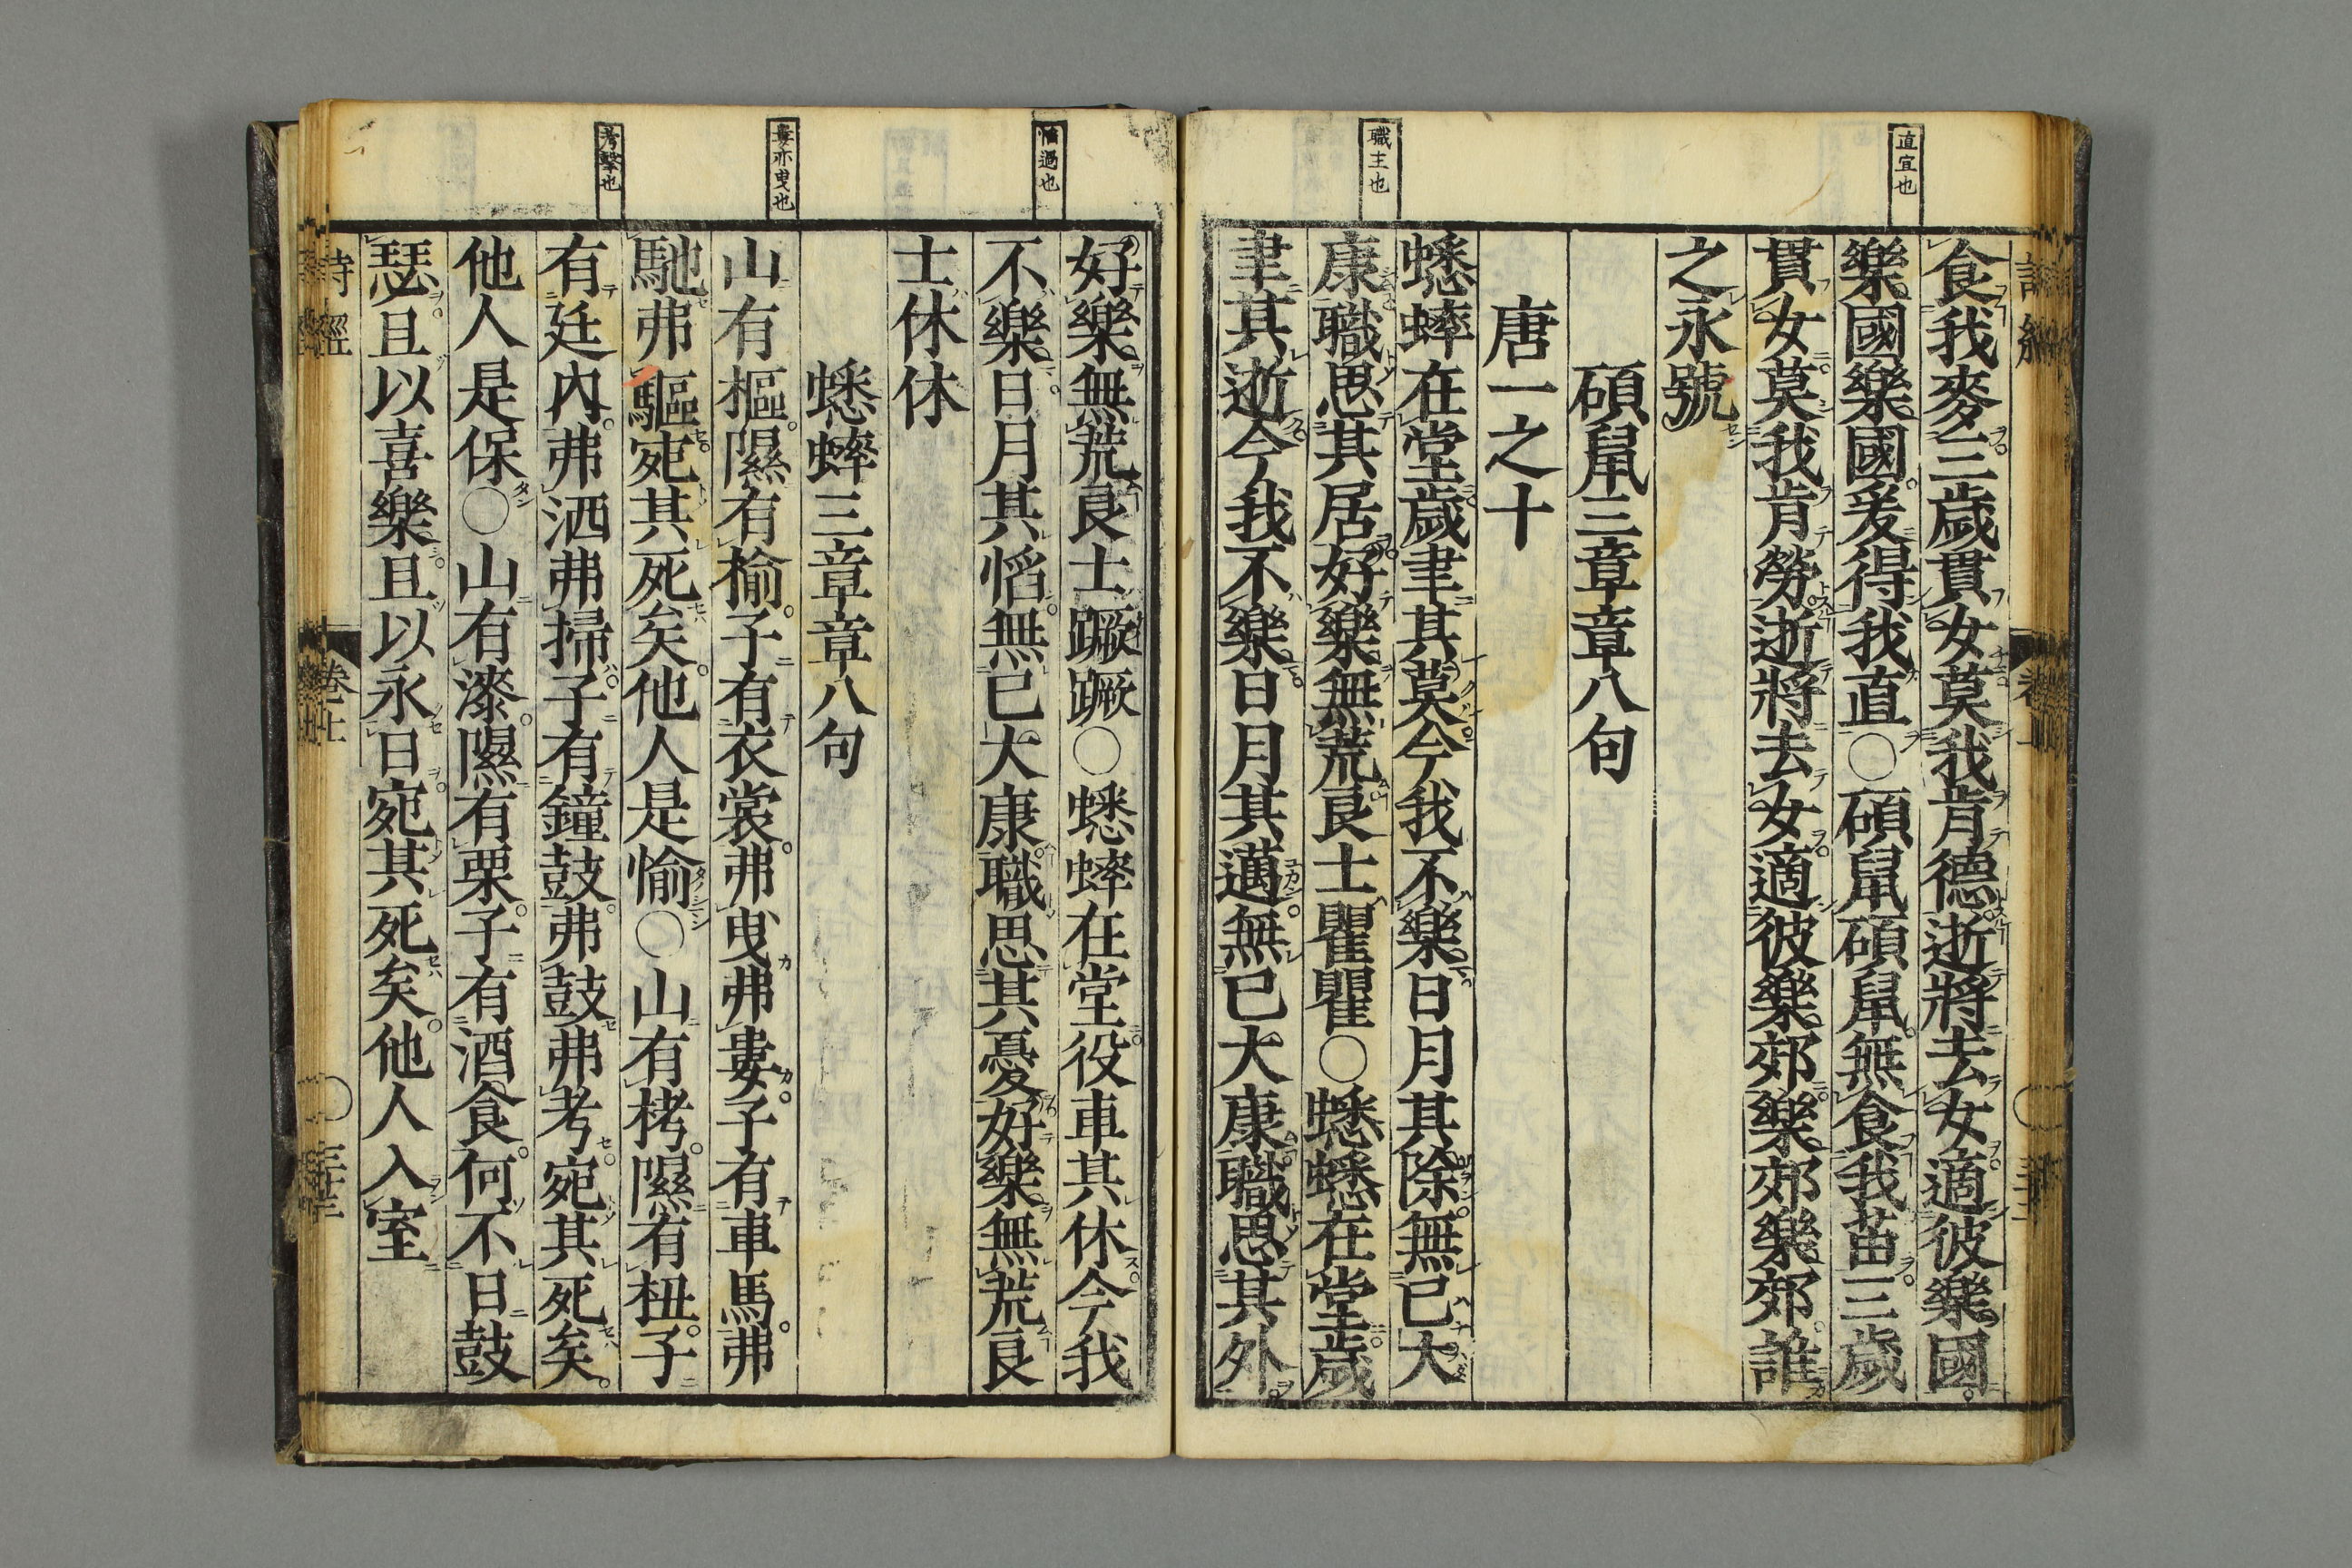 直宜也
職主也
食我麥三歲貫女莫我肯德逝將去女適彼樂國
樂國樂國爰得我直○碩鼠碩鼠無食我苗三歲
貫女莫我肯勞逝將去女適彼樂郊樂郊樂郊誰
之永號
碩鼠三章章八句
唐一之十
蟋蟀在堂歲聿其莫今我不樂日月其除無已大
康職思其居好樂無荒良士瞿瞿○蟋蟀在堂歲
聿其逝今我不樂日月其邁無已大康職思其外
慆過也
婁亦曳也
考擊也
好樂無荒良士蹶蹶○蟋蟀在堂役車其休今我
不樂日月其慆無已大康職思其憂好樂無荒良
士休休
蟋蟀三章章八句
山有樞隰有榆子有衣裳弗曳弗婁子有車馬弗
馳弗驅宛其死矣他人是愉○山有栲隰有杻子
有廷內弗洒弗掃子有鐘鼓弗鼓弗考宛其死矣
他人是保○山有漆隰有栗子有酒食何不日鼓
瑟且以喜樂且以永日宛其死矣他人入室
詩經
卷上